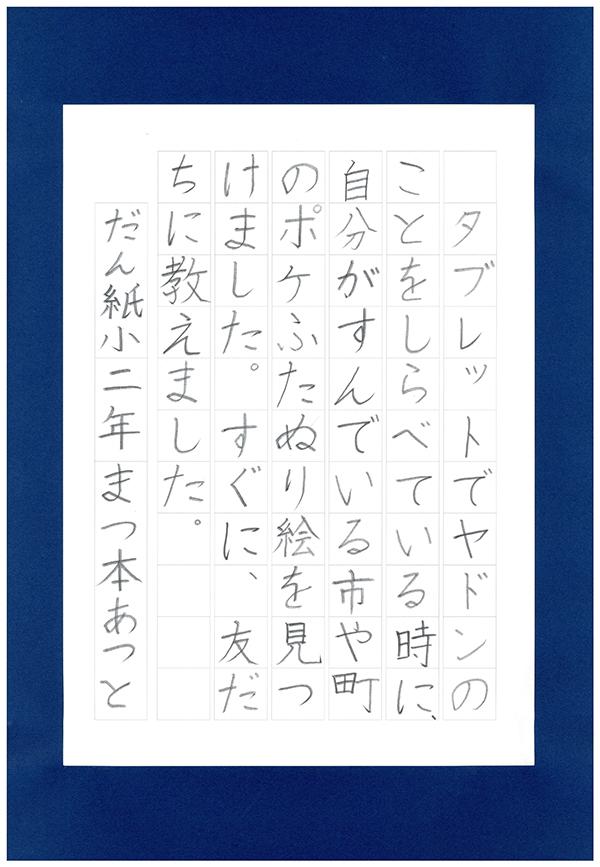 タブレットでヤドンの
ことをしらべている時に、
自分がすんでいる市や町
のポケふたぬり絵を見つ
けました。すぐに、友だ
ちに教えました。
だん紙小二年まつ本あつと